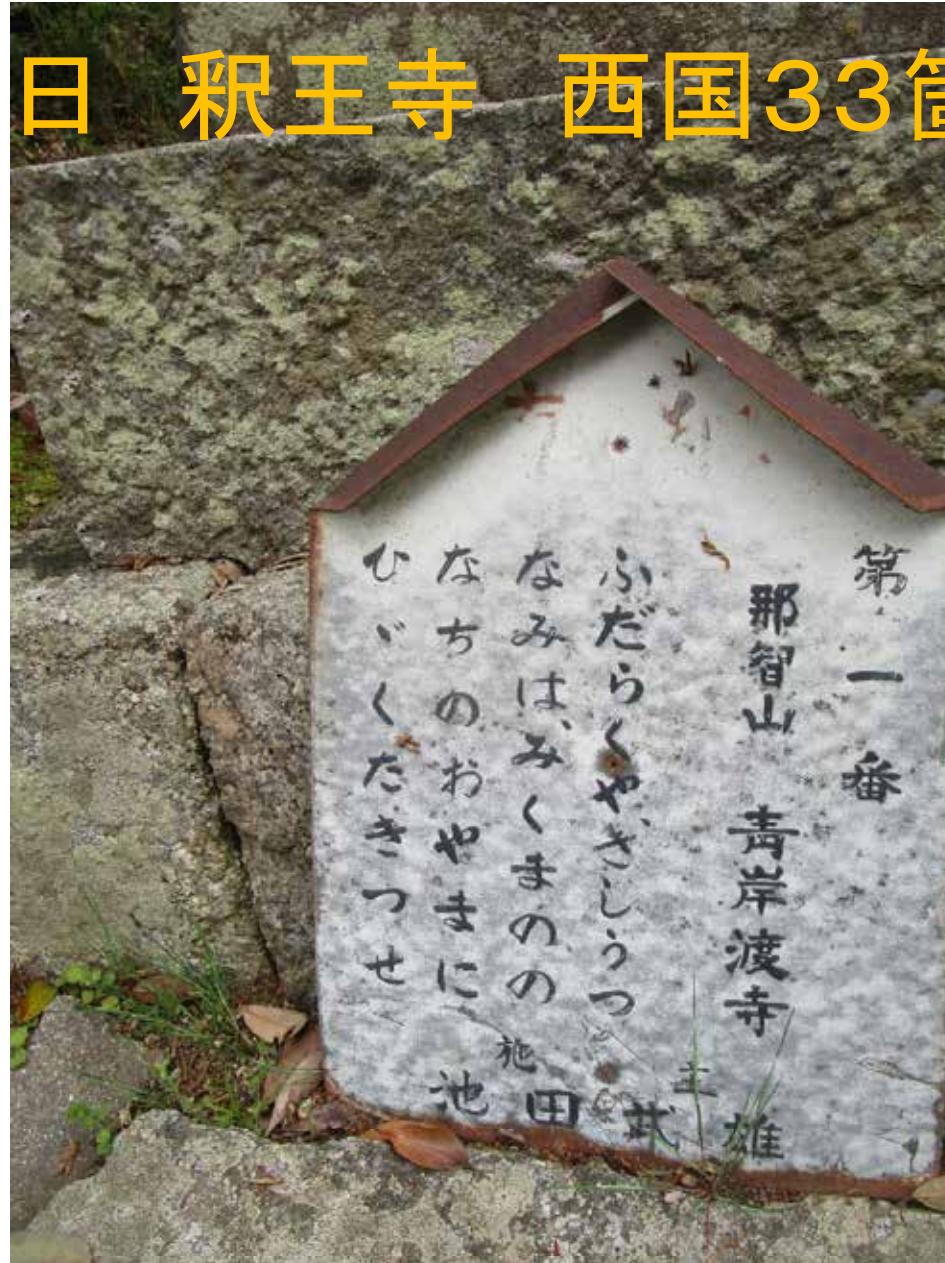 日 釈王寺 西国33箇
第一番
那智山 青岸渡寺
ふだらくやきしうつ
なみはみくまのの
なちのおやまに
ひゞくたきつせ
施主
池田武雄